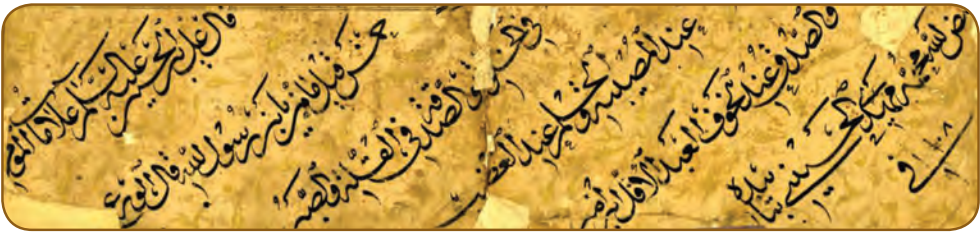 قال علي بن الحسين عليه السلام علامات المؤمن
خمس قيل وما هن يا بن رسول الله قال الورع
في الخلوة والصدقة في القلة والصبر
عند المصيبة والحلم عند الغضب
والصدق عند الخوف العبد الاقل
مهدي الحسيني
في